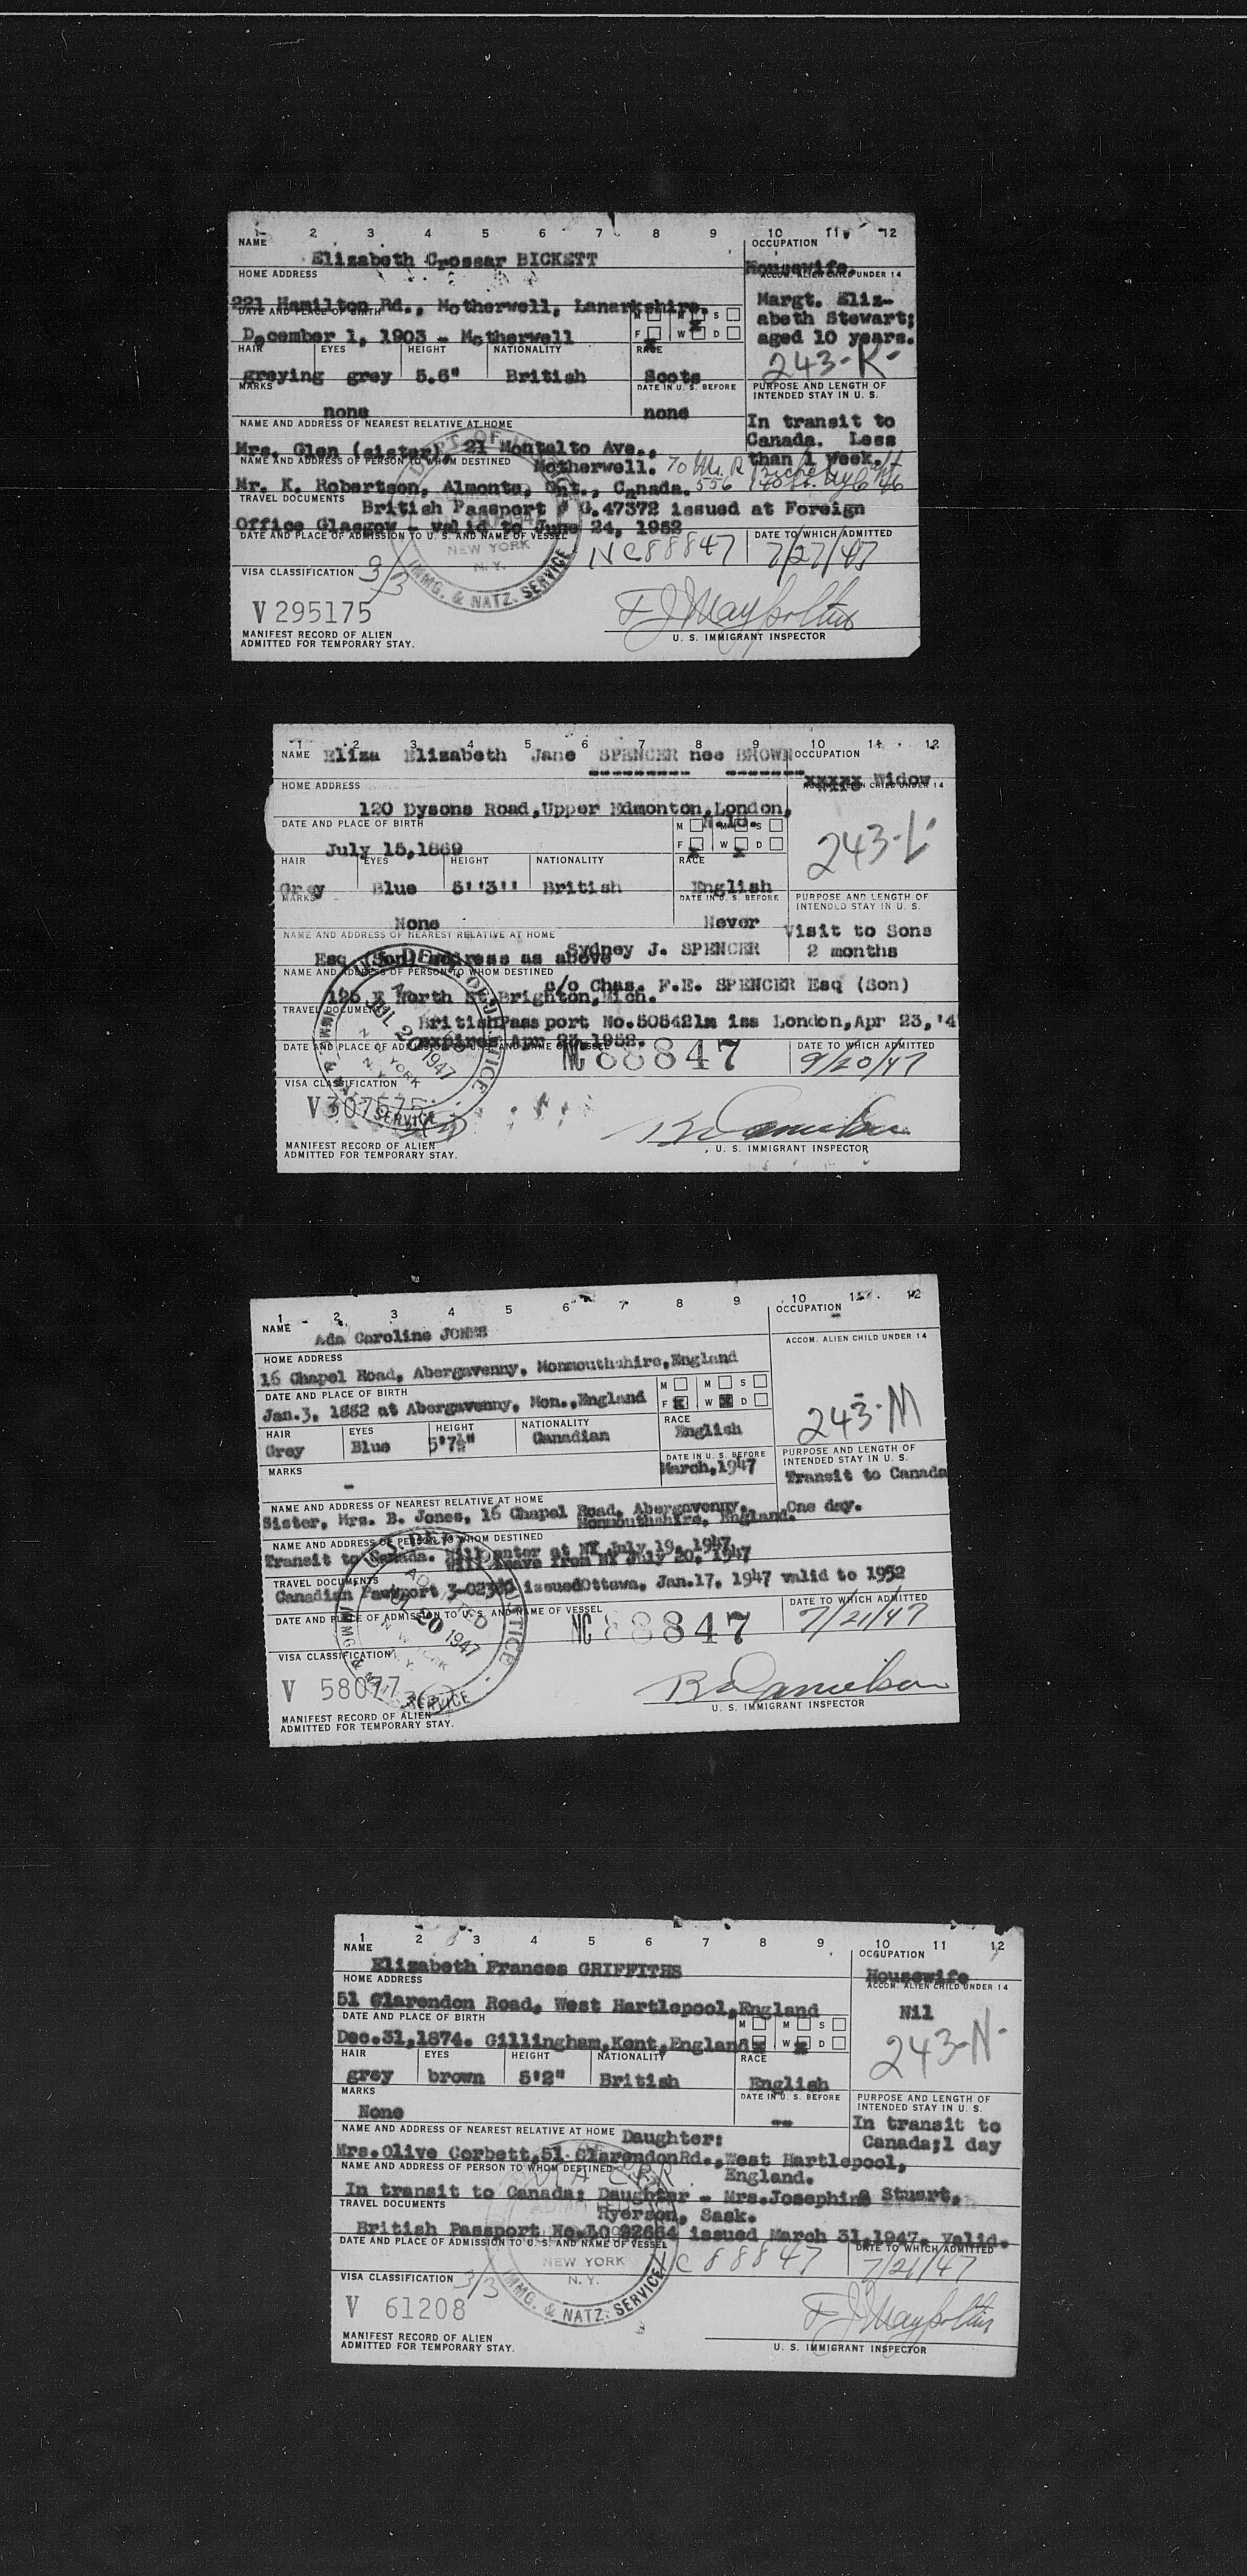 1 2 3 4 5 6 7 8 9 10 11 12
NAME OCCUPATION
Elizabeth Crossar BICKETT Housewife.
HOME ADDRESS ACCOM. ALIEN CHILD UNDER 14
221 Hamilton Rd., Motherwell, Lanarkshire. Margt. Eliz-
DATE AND PLACE OF BIRTH M M S abeth Stewart;
December 1, 1903 - Motherwell F W D aged 10 years.
HAIR EYES HEIGHT NATIONALITY RACE 243-K-
greying grey 5.6" British Scots
MARKS DATE IN U. S. BEFORE PURPOSE AND LENGTH OF INTENDED STAY IN U. S.
none none In transit to
NAME AND ADDRESS OF NEAREST RELATIVE AT HOME Canada. Less
Mrs. Glen (sister), 21 Montalto Ave., than 1 week.
NAME AND ADDRESS OF PERSON TO WHOM DESTINED Motherwell. To Mr. R
Mr. K. Robertson, Almonte, Ont., Canada. 556
TRAVEL DOCUMENTS British Passport # G.47372 issued at Foreign
Office Glasgow - valid to June 24, 1952
DATE AND PLACE OF ADMISSION TO U. S. AND NAME OF VESSEL NC88847 DATE TO WHICH ADMITTED
7/27/47
NEW YORK
N. Y.
IMMG. & NATZ. SERVICE
VISA CLASSIFICATION 3/3
V 295175
MANIFEST RECORD OF ALIEN U. S. IMMIGRANT INSPECTOR
ADMITTED FOR TEMPORARY STAY.
1 2 3 4 5 6 7 8 9 10 11 12
NAME Eliza Elizabeth Jane SPENCER nee BROWN OCCUPATION
xxxxx Widow
HOME ADDRESS ACCOM. ALIEN CHILD UNDER 14
120 Dysons Road,Upper Edmonton,London,
DATE AND PLACE OF BIRTH N.18. M M S
July 15,1869 F W D 243-L-
HAIR EYES HEIGHT NATIONALITY RACE
Grey Blue 5''3'' British English
MARKS DATE IN U. S. BEFORE PURPOSE AND LENGTH OF INTENDED STAY IN U. S.
None Never Visit to Sons
NAME AND ADDRESS OF NEAREST RELATIVE AT HOME Sydney J. SPENCER 2 months
Esq (Son) address as above
NAME AND ADDRESS OF PERSON TO WHOM DESTINED c/o Chas. F.E. SPENCER Esq (Son)
125 E North St,Brighton,Mich.
TRAVEL DOCUMENTS BritishPassport No.505421m iss London,Apr 23,'4
expires Apr 23,1952.
DATE AND PLACE OF ADMISSION TO U. S. AND NAME OF VESSEL NC 88847 DATE TO WHICH ADMITTED
9/20/47
JUL 20 1947
VISA CLASSIFICATION
V307575
MANIFEST RECORD OF ALIEN U. S. IMMIGRANT INSPECTOR
ADMITTED FOR TEMPORARY STAY.
1 2 3 4 5 6 7 8 9 10 11 12
NAME Ada Caroline JONES OCCUPATION -
HOME ADDRESS ACCOM. ALIEN CHILD UNDER 14
16 Chapel Road, Abergavenny, Monmouthshire,England
DATE AND PLACE OF BIRTH M M S
Jan.3, 1882 at Abergavenny, Mon.,England F W D 243-M
HAIR EYES HEIGHT NATIONALITY RACE
Grey Blue 5'7½" Canadian English
MARKS DATE IN U. S. BEFORE PURPOSE AND LENGTH OF INTENDED STAY IN U. S.
- March,1947 Transit to Canada
NAME AND ADDRESS OF NEAREST RELATIVE AT HOME One day.
Sister, Mrs. B. Jones, 16 Chapel Road, Abergavenny,
Monmouthshire, England.
NAME AND ADDRESS OF PERSON TO WHOM DESTINED
Transit to Canada. Will enter at NY July 19, 1947
Will leave from NY July 20, 1947
TRAVEL DOCUMENTS
Canadian Passport issuedOttawa, Jan.17, 1947 valid to 1952
DATE AND PLACE OF ADMISSION TO U. S. AND NAME OF VESSEL NC 88847 DATE TO WHICH ADMITTED
7/21/47
ADMITTED
JUL 20 1947
VISA CLASSIFICATION
V 58077
MANIFEST RECORD OF ALIEN U. S. IMMIGRANT INSPECTOR
ADMITTED FOR TEMPORARY STAY.
1 2 3 4 5 6 7 8 9 10 11 12
NAME OCCUPATION
Elizabeth Frances GRIFFITHS Housewife
HOME ADDRESS ACCOM. ALIEN CHILD UNDER 14
51 Clarendon Road, West Hartlepool,England Nil
DATE AND PLACE OF BIRTH M M S
Dec.31,1874. Gillingham,Kent,England F W D 243-N-
HAIR EYES HEIGHT NATIONALITY RACE
grey brown 5'2" British English
MARKS DATE IN U. S. BEFORE PURPOSE AND LENGTH OF INTENDED STAY IN U. S.
None -- In transit to
NAME AND ADDRESS OF NEAREST RELATIVE AT HOME Daughter: Canada;1 day
Mrs.Olive Corbett,51 ClarendonRd.,West Hartlepool,
NAME AND ADDRESS OF PERSON TO WHOM DESTINED England.
In transit to Canada; Daughter - Mrs.Josephine Stuart,
TRAVEL DOCUMENTS Ryerson, Sask.
British Passport No.LO 92664 issued March 31,1947. Valid.
DATE AND PLACE OF ADMISSION TO U. S. AND NAME OF VESSEL NC 88847 DATE TO WHICH ADMITTED
7/21/47
NEW YORK
N. Y.
IMMG. & NATZ. SERVICE
VISA CLASSIFICATION 3/3
V 61208
MANIFEST RECORD OF ALIEN U. S. IMMIGRANT INSPECTOR
ADMITTED FOR TEMPORARY STAY.